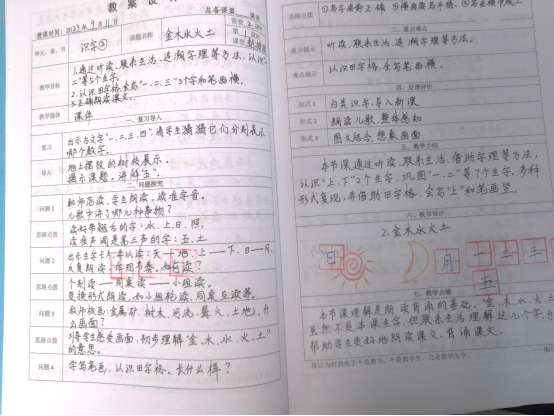 教案设
总备课第 课时
授课时间: 2023年9月11日
单元、章、节
识字②
课题名称
金木水火土
第1课时
课型
教学目标
1.通过听读、联系生活、追溯字理等方法,认识"一
二"等5个生字。
2.认识田字格,会写"一、二、三"3个字和笔画横。
3.正确朗读课文。
教学媒体
课件
一、复习导入
复习
出示文字"一、二、三、四",请学生猜猜它们分别表示
哪个数字。
导入
地上摆放的树枝展示。
揭示课题,讲解"土"。
二、问题探究
问题1
教师范读,学生朗读,读准字音。
儿歌中讲了哪几种事物?
思路点拨
读好带翘舌的字:水、上、日、照,
读准声调是第三声的字:五、土
问题2
出示生字卡片并认读:天——地、上——下、日——月,
反复朗读,体现节奏,如何读?
思路点拨
个别读——同桌读——小组读。
变换形式朗读,如小组轮读、同桌互读等。
问题3
教师板画:金矿、树木、河流、篝火、土地),什
么画面?
思路点拨
引导学生感受画面,初步理解"金、木、水、火、土"
的意思。
问题4
学写笔画,认识田字格。长什么样?
思路点拨
三、重点难点
重点提示
听读、联系生活、追溯字理等方法。
难点提示
认识田字格,会写笔画横。
四、反馈评价
形式1
归类识字,导入新课
形式2
朗读儿歌,整体感知
形式3
图文结合,想象画面
五、教学小结
本节课通过听读,联系生活,借助字理等方法,
认识"上、下"2个生字,巩固"一、二"等7个生字,多种
形式复现,并借助田字格,会写"上"和笔画竖。
六、板书设计
2.金木水火土
日
月
一
二
三
五
七、教学点睛
本节课理解是朗读背诵的基础。"金、木、水、火、土"
虽然不是本课生字,但联系生活理解这几个字,可
帮助学生更好地朗读课文、背诵课文。